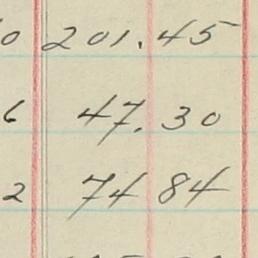 0 201.45
6 47.30
2 74 84